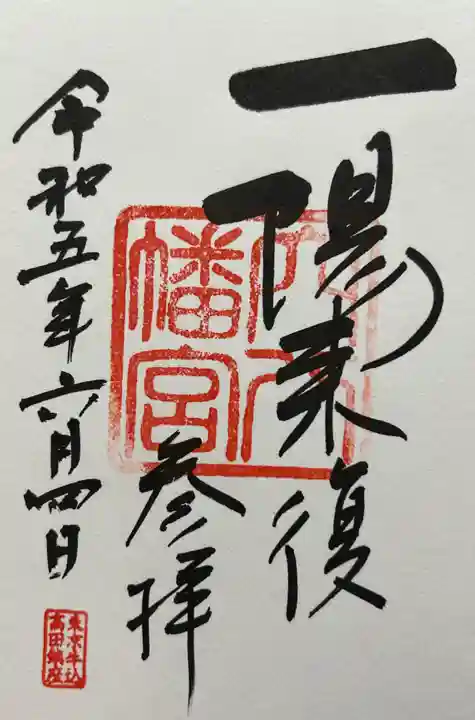 一陽来復
参拝
令和五年六月四日
八幡宮
東京牛込
高田鎮座